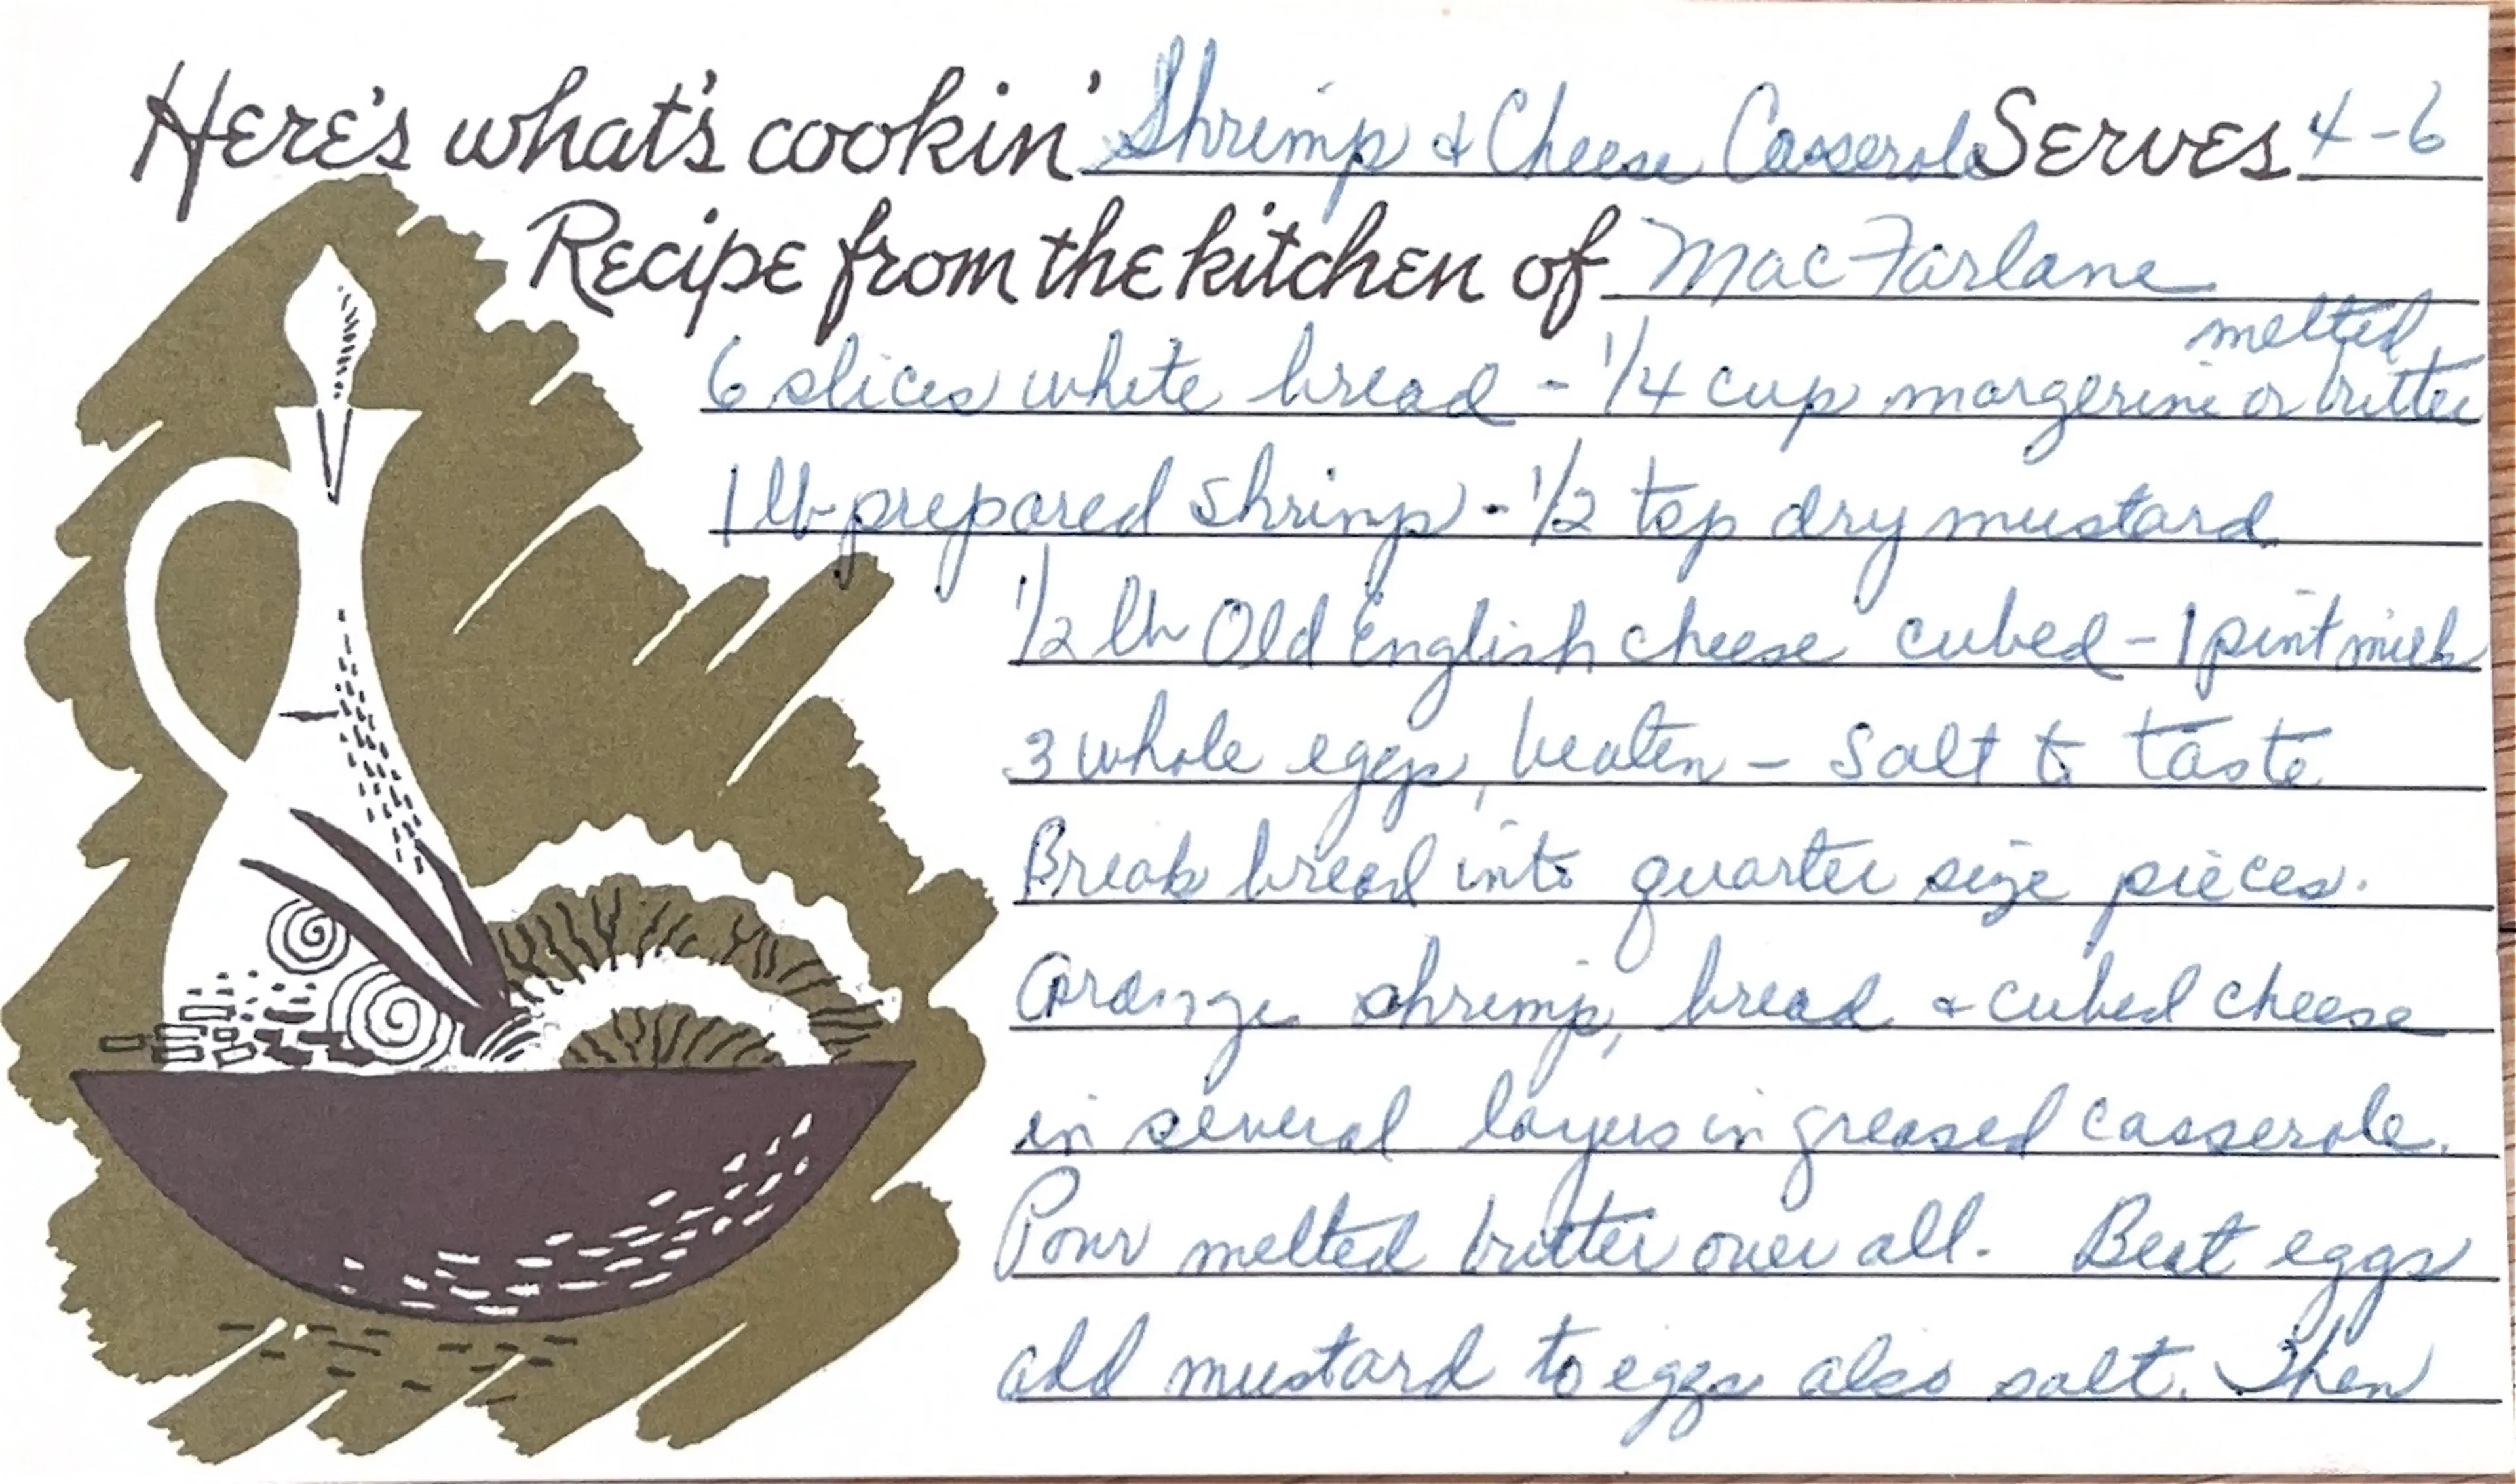 Here's what's cookin' Shrimp & Cheese Casserole Serves 4-6
Recipe from the kitchen of MacFarlane
melted
6 slices white bread - 1/4 cup margerine or butter
1 lb prepared shrimp - 1/2 tsp dry mustard
1/2 lb Old English cheese cubed - 1 pint milk
3 whole eggs, beaten - Salt to taste
Break bread into quarter size pieces.
Arange shrimp, bread & cubed cheese
in several layers in greased casserole.
Pour melted butter over all. Beat eggs
add mustard to eggs also salt. Then